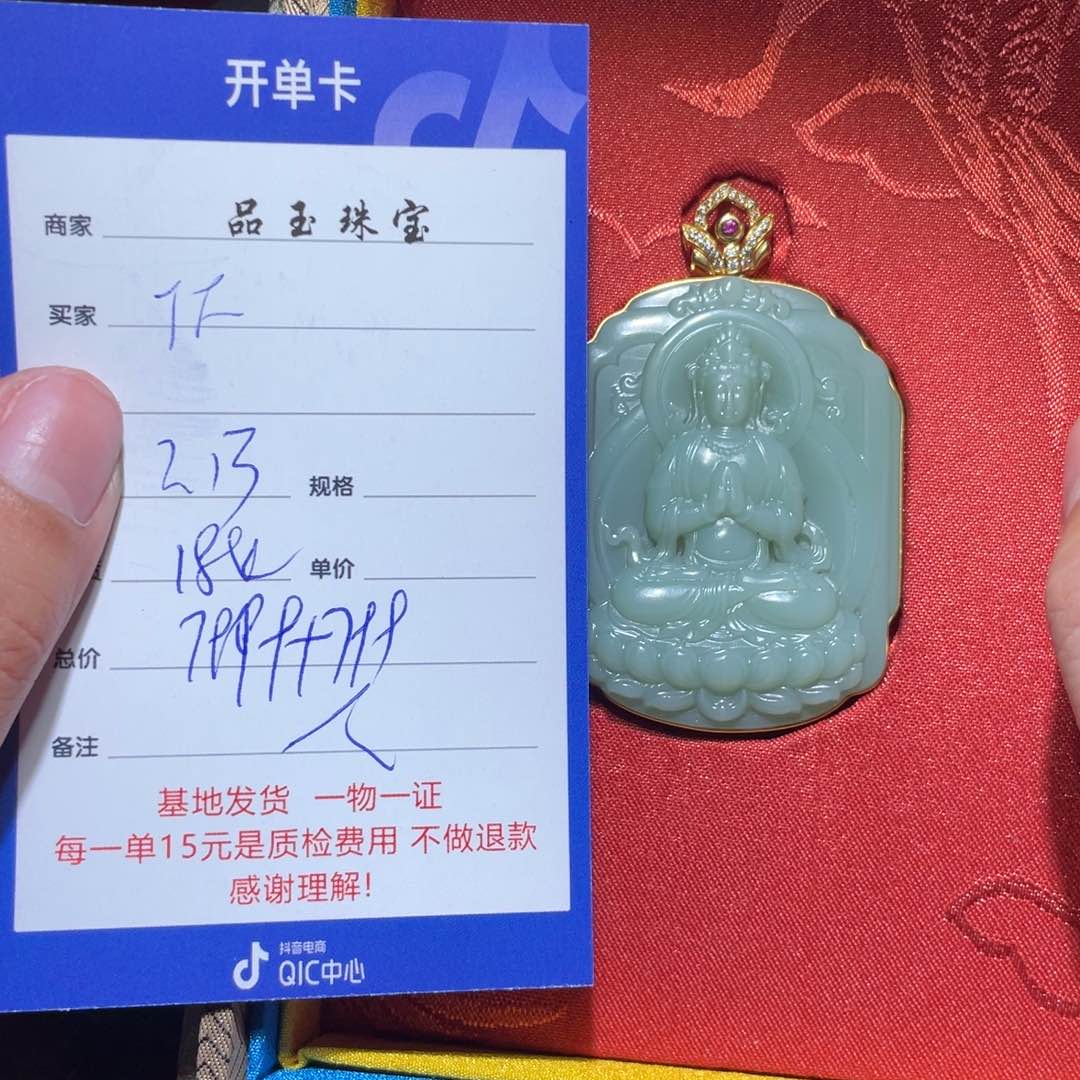 开单卡
商家 品玉珠宝
买家
213 规格
18k 单价
总价
备注
基地发货 一物一证
每一单15元是质检费用 不做退款
感谢理解!
抖音电商
QIC中心